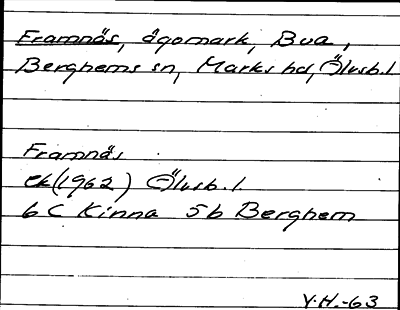 Framnäs, ägomark, Bua,
Berghems sn, Marks hd, Älvsb. l
Framnäs
ek (1962) Älvsb. l.
6 C Kinna 5 b Berghem
Y.H.-63